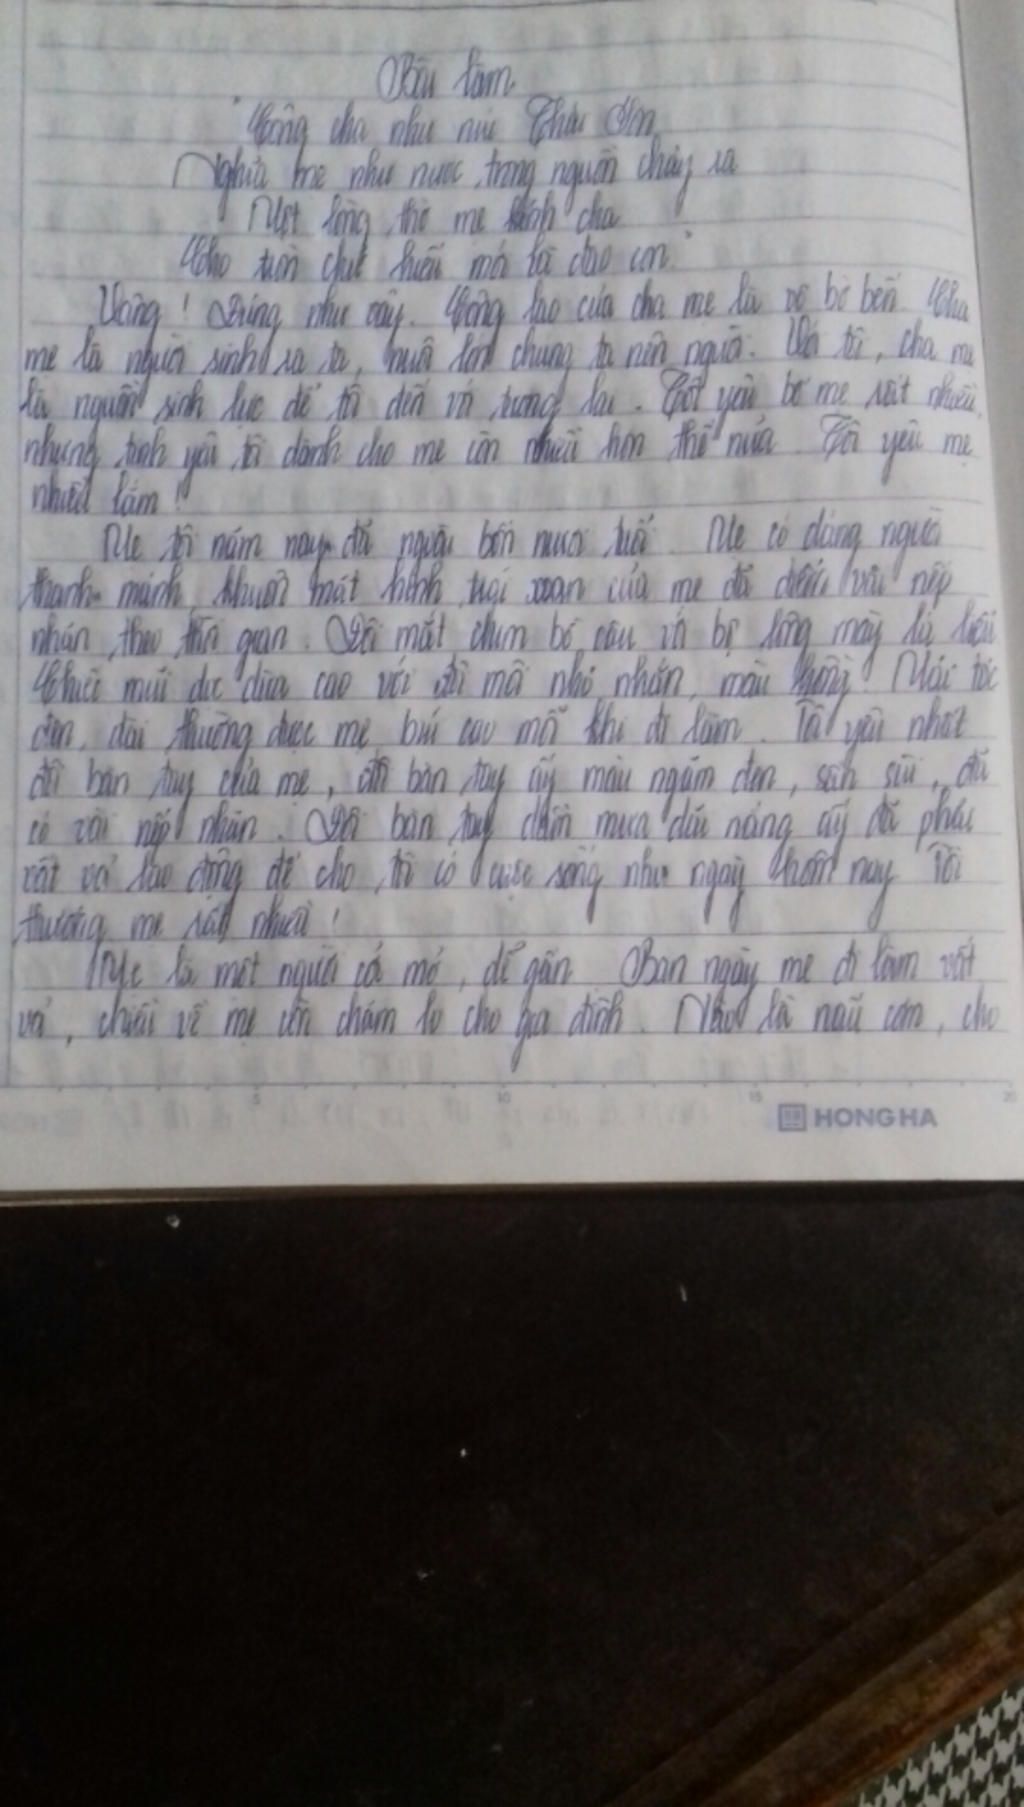 Bài làm
"Công cha như núi Thái Sơn
Nghĩa mẹ như nước trong nguồn chảy ra
Một lòng thờ mẹ kính cha
Cho tròn chữ hiếu mới là đạo con"
Vâng! Đúng như vậy. Công lao của cha mẹ là vô bờ bến. Cha
mẹ là người sinh ra ta, nuôi lớn chúng ta nên người. Với tôi, cha mẹ
là nguồn sinh lực để tôi đến với tương lai. Tôi yêu bố mẹ rất nhiều,
nhưng tình yêu tôi dành cho mẹ còn nhiều hơn thế nữa. Tôi yêu mẹ
nhiều lắm!
Mẹ tôi năm nay đã ngoài bốn mươi tuổi. Mẹ có dáng người
thanh mảnh, khuôn mặt hình trái xoan của mẹ đã điểm vài nếp
nhăn theo thời gian. Đôi mắt chim bồ câu với bộ lông mày lá liễu
Chiếc mũi dọc dừa cao với đôi môi nhỏ nhắn, màu hồng. Mái tóc
đen, dài thường được mẹ búi cao mỗi khi đi làm. Tôi yêu nhất
đôi bàn tay của mẹ, đôi bàn tay ấy màu ngăm đen, sần sùi, đã
có vài nếp nhăn. Đôi bàn tay dầm mưa dãi nắng ấy đã phải
vất vả lao động để cho tôi có cuộc sống như ngày hôm nay Tôi
thương mẹ rất nhiều!
Mẹ là một người cởi mở, dễ gần Ban ngày mẹ đi làm vất
vả, chiều về mẹ còn chăm lo cho gia đình. Nào là nấu cơm, cho
5 10 15 20
HONG HA